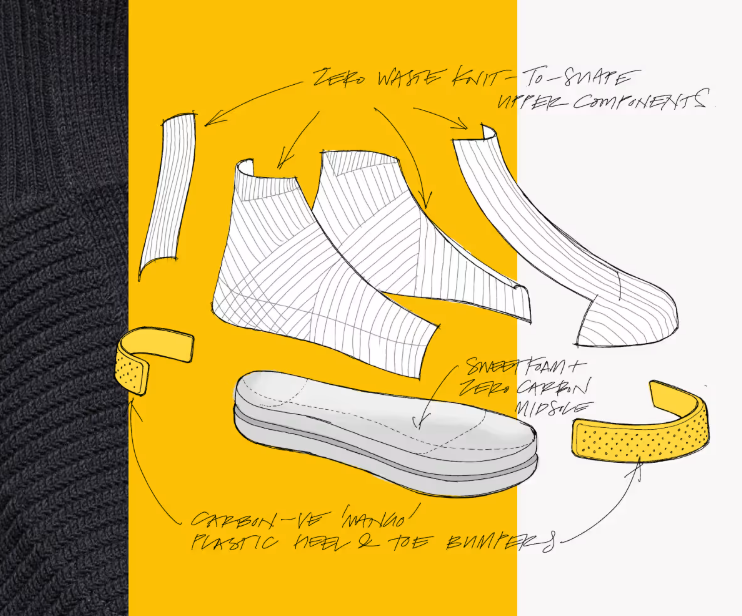 ZERO WASTE KNIT-TO-SHAPE
UPPER COMPONENTS
SWEETFOAM +
ZERO CARBON
MIDSOLE
CARBON-VE 'MANGO'
PLASTIC HEEL & TOE BUMPERS